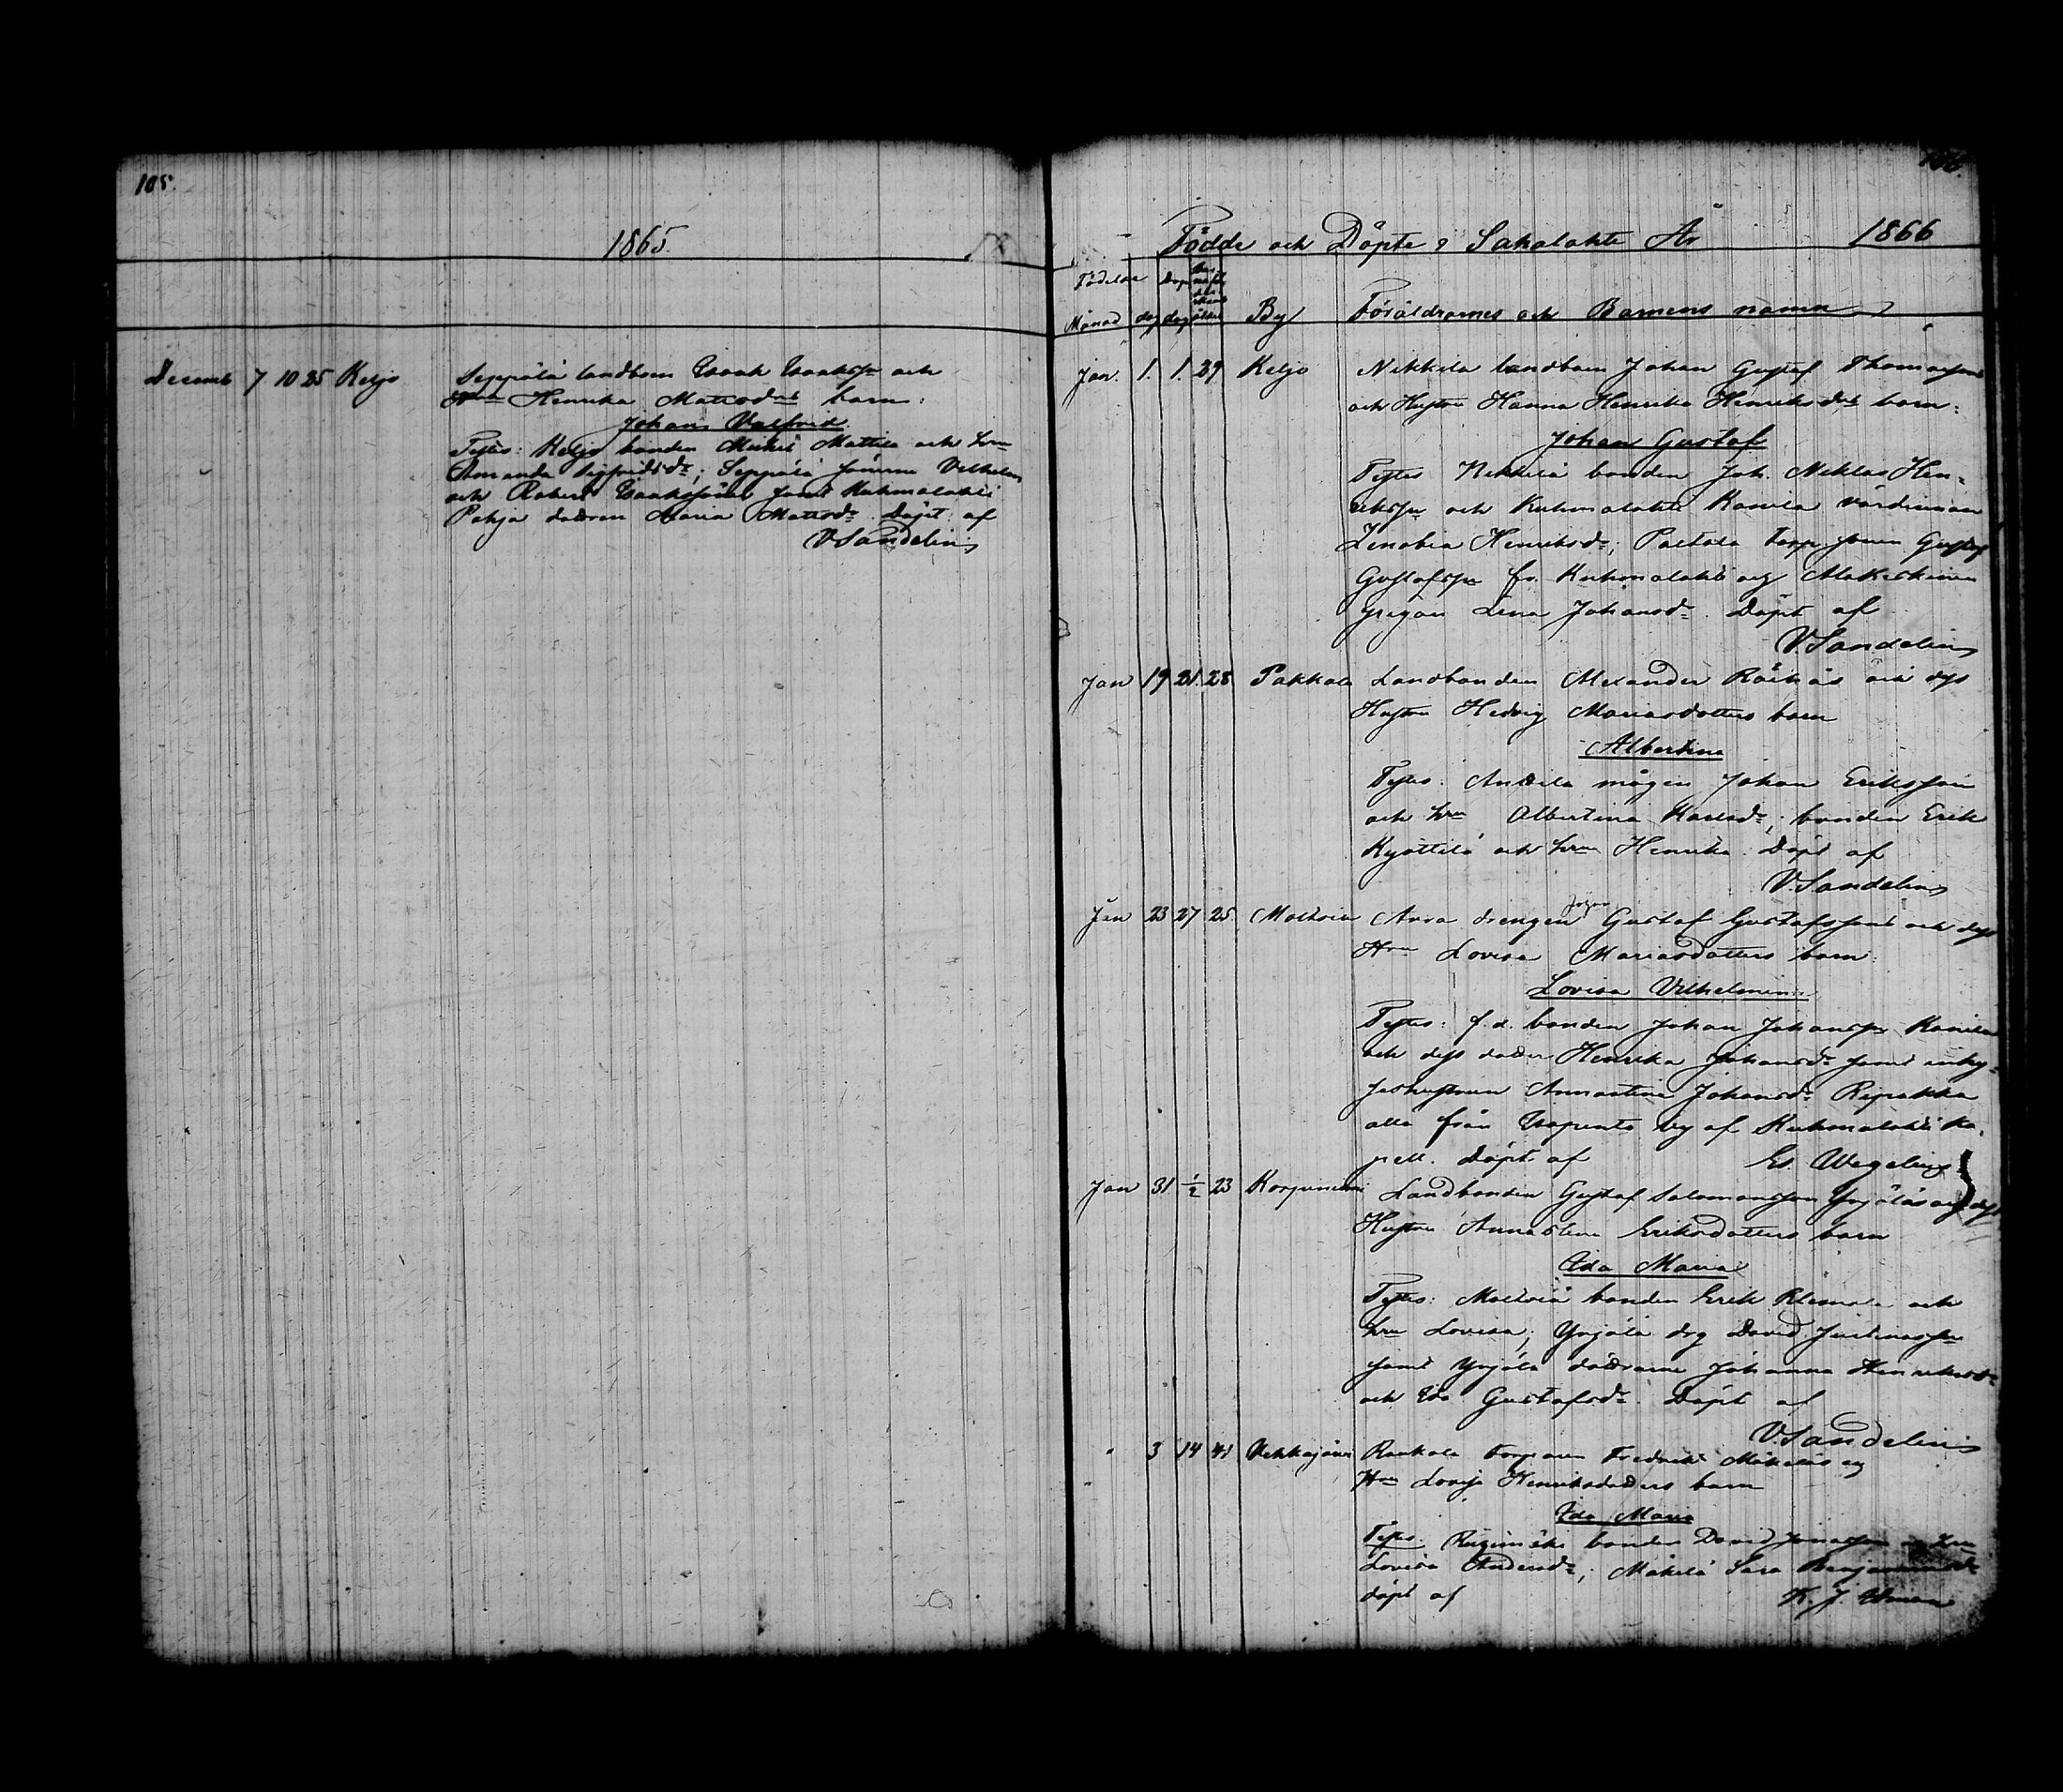 105.
1865.
Decemb 7 10 25 Keljo Seppälä landbon Isaak Isaaksn och
Hu Henrika Mattsdrs barn:
Johan Valfrid
Testes: Keljo bonden Mickel Mattila och hru
Amanda Sigfridsdr; Seppälä sönerne Vilhelm
och Robert Isaakssöner samt Kuhmalahti
Pohja dottren Maria Mattsdr. Döpt af
VSandelin
106.
Födde och Döpte i Sahalahti År 1866
Födelse Dop
Månad dag dag ålder By Föräldrarnes och Barnens namn
Jan. 1. 1. 29 Keljo Nikkilä landboen Johan Gustaf Thomassons
och Hustru Hanna Henrika Henriksdrs barn:
Johan Gustaf
Testes Nikkilä bonden Joh. Niklas Hen-
riksn och Kuhmalahti Kauila värdinnan
Zenobia Henriksdr; Paltala torp sonen Gustaf
Gustafssn fr. Kuhmalahti och
pigan Lena Johansdr. Döpt af
VSandelin
Jan 19 21 28 Pakkala Landbonden Alexander Räihäs och dess
Hustru Hedvig Mariasdotters barn
Albertina
Testes: Anttila mågen Johan Eriksson
och hru Albertina Karlsdr; bonden Erik
Kyöttilä och hru Henrika. Döpt af
VSandelin
Jan 23 27 25 Moltoia Anra drengen Johan Gustaf Gustafssons och dess
Hru Lovisa Mariasdotters barn:
Lovisa Vilhelmina
Testes: f.d. bonden Johan Johanssn Kauila
och dess dotter Henrika Johansdr samt inhy-
ses hustrun Annastina Johansdr Repakka
alla från Vapento by af Kuhmalahti Ka-
pell. Döpt af Es. Wegelius
Jan 31 1/2 23 Korpiniemi Landbonden Gustaf Salomonsson Yrjöläs och dess
Hustru Annastina Eriksdotters barn
Ida Maria
Testes: Moltoia bonden Erik Klemola och
hru Lovisa; Yrjölä drg David Justinassn
samt Yrjölä döttrarne Johanna Henriksdr
och Ida Gustafsdr. Döpt af
VSandelin
" 3 14 41 Vekkajärvi Raukola torparen Fredrik Mäkeläs og
Hru Lovisa Henriksdotters barn
Ida Maria
Testes: bonden David Jonasson och hru
Lovisa Andersdr; Mäkelä Sara Benjaminsdr
döpt af K. J.